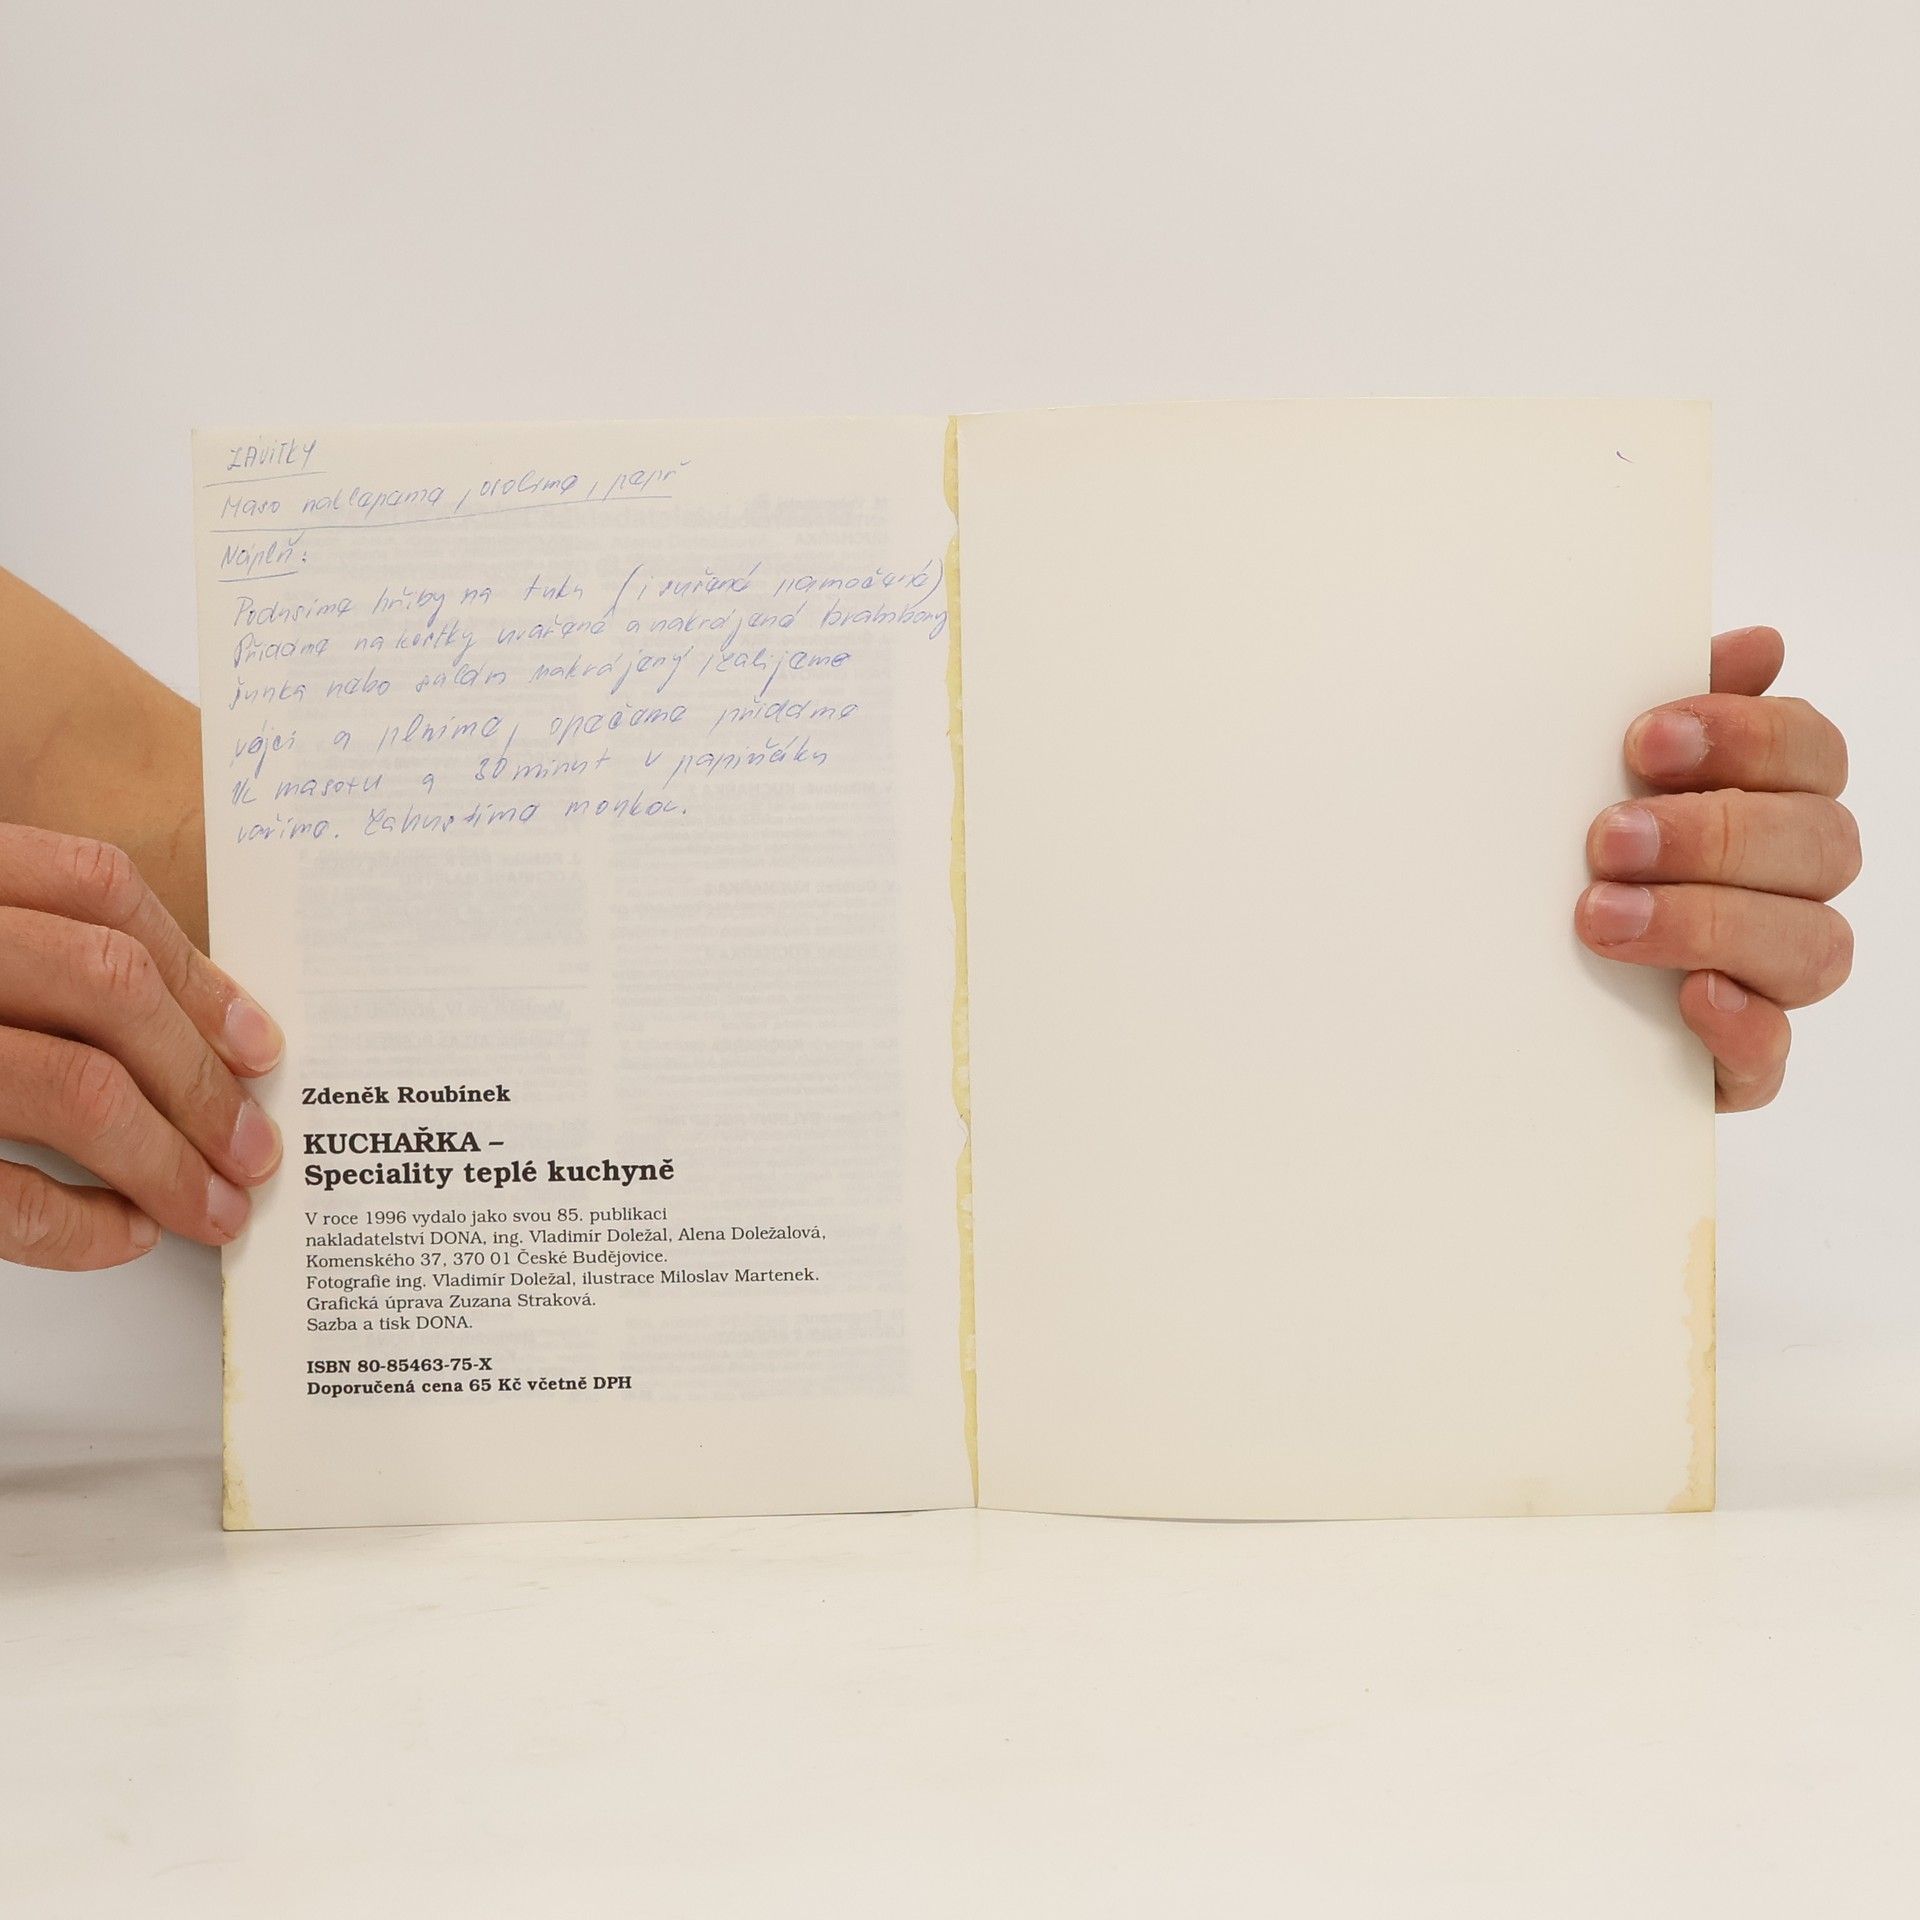 ZÁVITKY
Maso naklepame, osolíme, pepř
Náplň:
Podusíme hřiby na tuku (i sušené namočené)
Přidáme na kostky uvařené a nakrájené brambory
šunka nebo salám nakrájený, zalijeme
vejci a plníme, opečeme přidáme
k masoxu a 30 minut v papiňáku
vaříme. Zahustíme moukou.
Zdeněk Roubínek
KUCHAŘKA –
Speciality teplé kuchyně
V roce 1996 vydalo jako svou 85. publikaci
nakladatelství DONA, ing. Vladimír Doležal, Alena Doležalová,
Komenského 37, 370 01 České Budějovice.
Fotografie ing. Vladimír Doležal, ilustrace Miloslav Martenek.
Grafická úprava Zuzana Straková.
Sazba a tisk DONA.
ISBN 80-85463-75-X
Doporučená cena 65 Kč včetně DPH